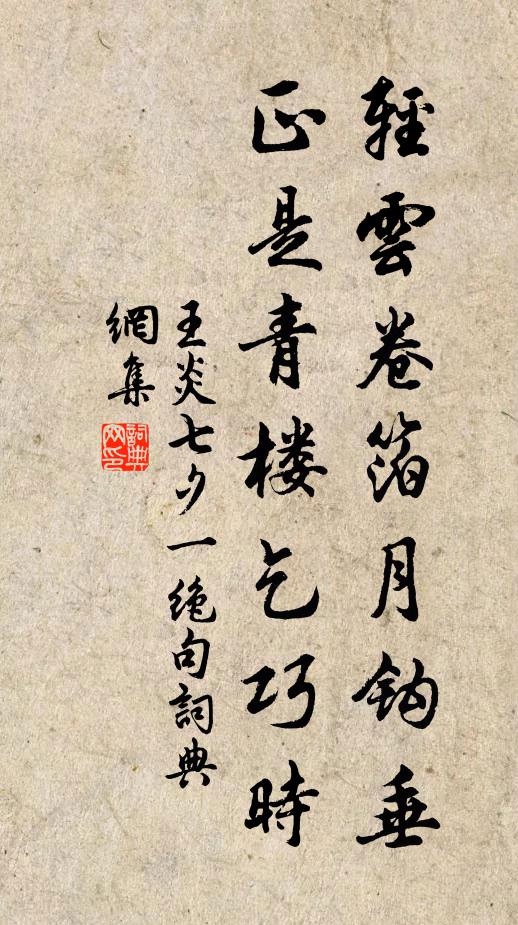 輕雲卷箔月鈎垂
正是青楼乞巧時
王炎七夕一絶句詞典
網集
詞典网印